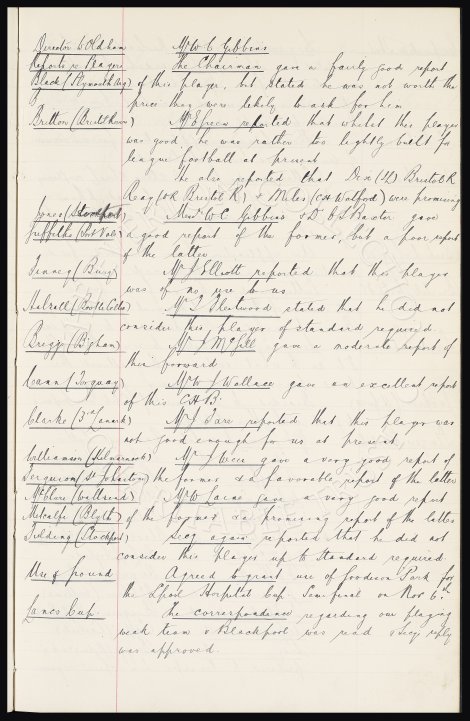 Director to Oldham Mr W C Gibbins
Reports re Players The Chairman gave a fairly good report
Black (Plymouth Arg) of this player, but stated he was not worth the
price they were likely to ask for him
Britton (Bristol Rovers) Mr E Green reported that whilst this player
was good he was rather too lightly built for
league football at present
He also reported that Dix (IL) Bristol R
Reay (OR Bristol R) & Miles (CH Watford) were promising
Jones (Stockport) Messrs W C Gibbins & Dr C S Baxter gave
Griffiths (Port Vale) a good report of the former, but a poor report
of the latter
Finney (Bury) Mr J Elliott reported that this player
was of no use to us
Halsall (Bootle Celtic) Mr T Fleetwood stated that he did not
consider this player of standard required.
Briggs (Bigham) Mr J McGill gave a moderate report of
this forward
Cann (Torquay) Mr W J Wallace gave an excellent report
of this CHB.
Clarke (3rd Lanark) Mr J Fare reported that this player was
not good enough for us at present,
Williamson (Kilmarnock) Mr J Weir gave a very good report of
Ferguson (St Johnstone) the former & a favorable report of the latter
McClure (Wallsend) Mr W Caine gave a very good report
Metcalfe (Blyth) of the former & a promising report of the latter
Fielding (Stockport) Secy again reported that he did not
consider this player up to standard required.
Use of ground Agreed to grant use of Goodison Park for
the Lpool Hospital Cup Semi final on Nov 6th
Lancs Cup. The correspondence regarding our playing
weak team v Blackpool was read & Secy reply
was approved.